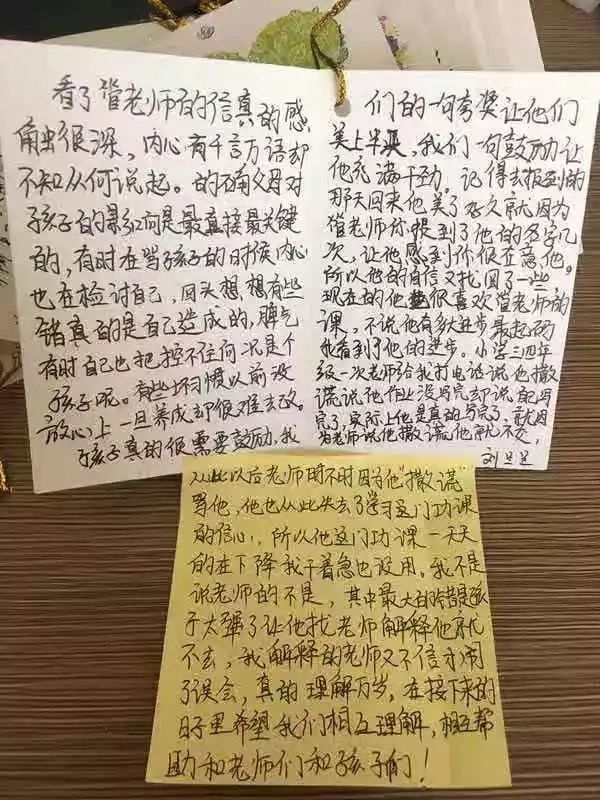 看了管老师的信真的感
触很深，内心有千言万语却
不知从何说起。的确父母对
孩子的影响是最直接最关键
的，有时在骂孩子的时侯内心
也在检讨自己，回头想想有些
错真的是自己造成的，脾气
有时自己也把控不住何况是个
孩子呢。有些坏习惯以前没
放心上一旦养成却很难去改。
孩子真的很需要鼓励，我
们的一句夸奖让他们
美上半天，我们一句鼓励让
他充满干劲。记得去报到的
那天回来他美了好久就因为
管老师你提到了他的名字几
次，让他感到你很在意他。
所以他的自信又找回了一些，
现在的他很喜欢管老师的
课，不说他有多大进步最起码
我看到了他的进步。小学三四年
级一次老师给我打电话说他撒
谎说他作业没写完却说自己写
完了，实际上他是真的写完了，就因
为老师说他撒谎他就不交，
刘
从此以后老师时不时因为他"撒谎"
骂他，他也从此失去了学习这门功课
的信心，所以他这门功课一天天
的在下降我干着急也没用，我不是
说老师的不是，其中最大的错是孩
子太犟了让他找老师解释他就
不去，我解释的老师又不信才闹
了误会，真的理解万岁，在接下来的
日子里希望我们相互理解，相互帮
助和老师们和孩子们！